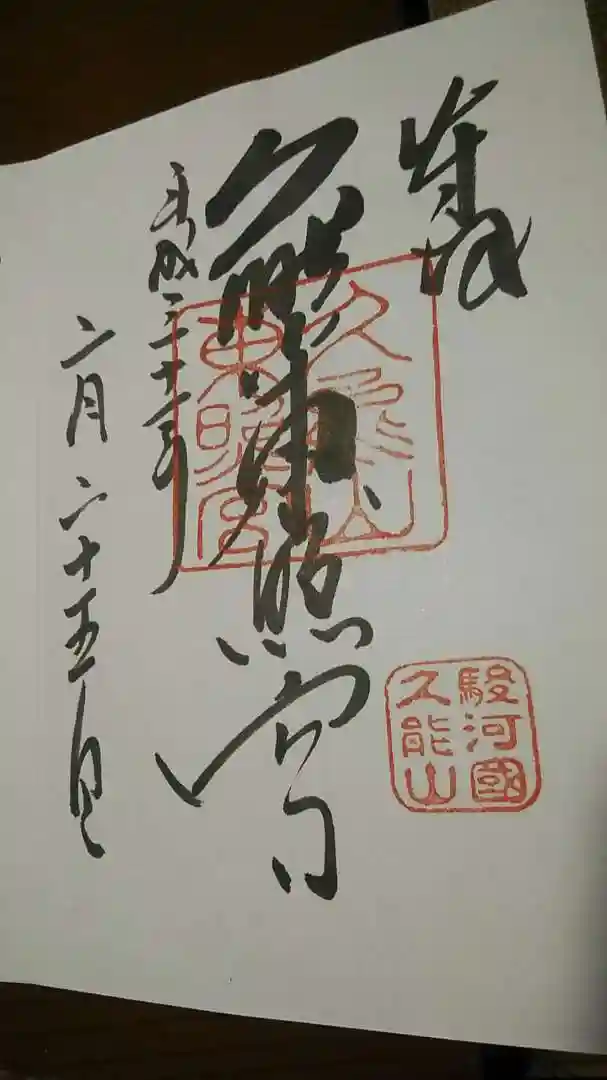 奉拝
久能山東照宮
平成三十一年
二月二十五日
久能山
東照宮
駿河國
久能山